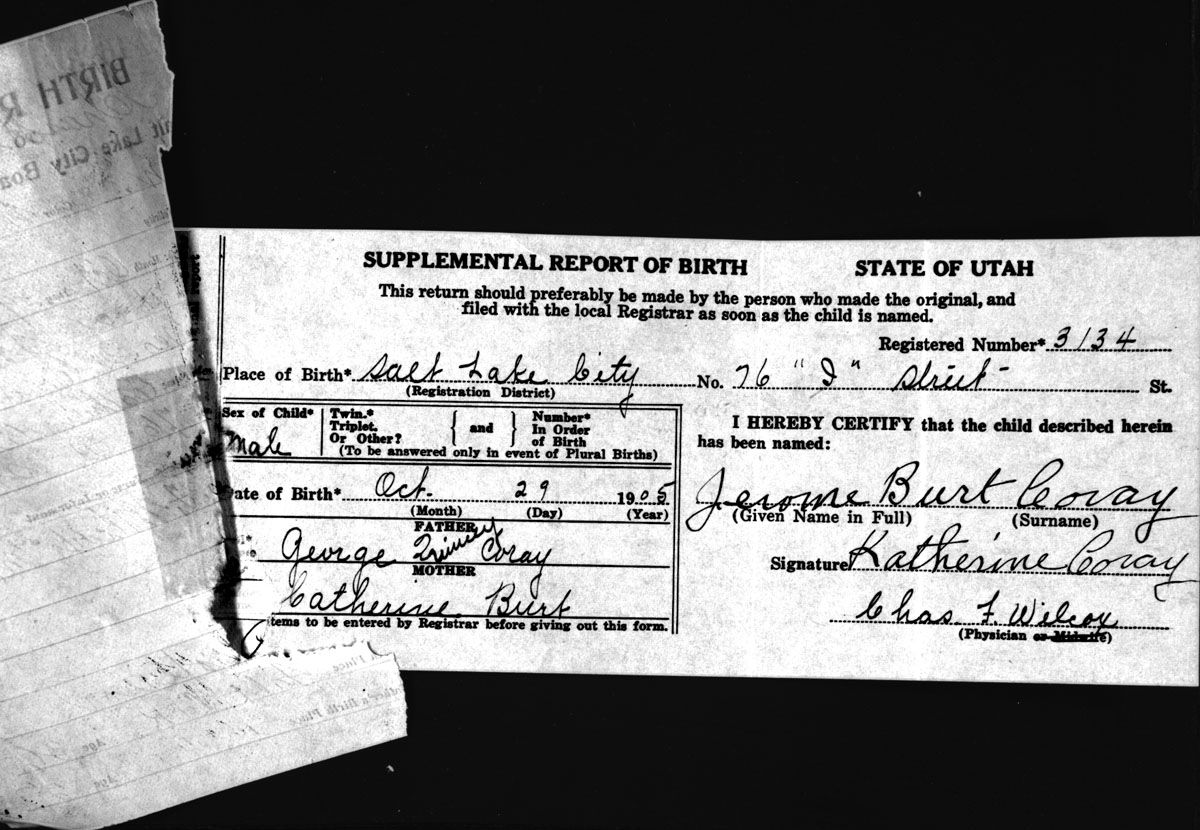 BIRTH R
Lake City Boa
SUPPLEMENTAL REPORT OF BIRTH STATE OF UTAH
This return should preferably be made by the person who made the original, and
filed with the local Registrar as soon as the child is named.
Registered Number* 3134
Place of Birth* Salt Lake City No. 76 "I" Street St.
(Registration District)
Sex of Child* Male
Twin.*
Triplet.
Or Other?
and
Number*
In Order
of Birth
(To be answered only in event of Plural Births)
Date of Birth* Oct. 29 1905
(Month) (Day) (Year)
FATHER
George Quincy Coray
MOTHER
Catherine Burt
tems to be entered by Registrar before giving out this form.
I HEREBY CERTIFY that the child described herein
has been named:
Jerome Burt Coray
(Given Name in Full) (Surname)
Signature Katherine Coray
Chas. F. Wilcox
(Physician or Midwife)